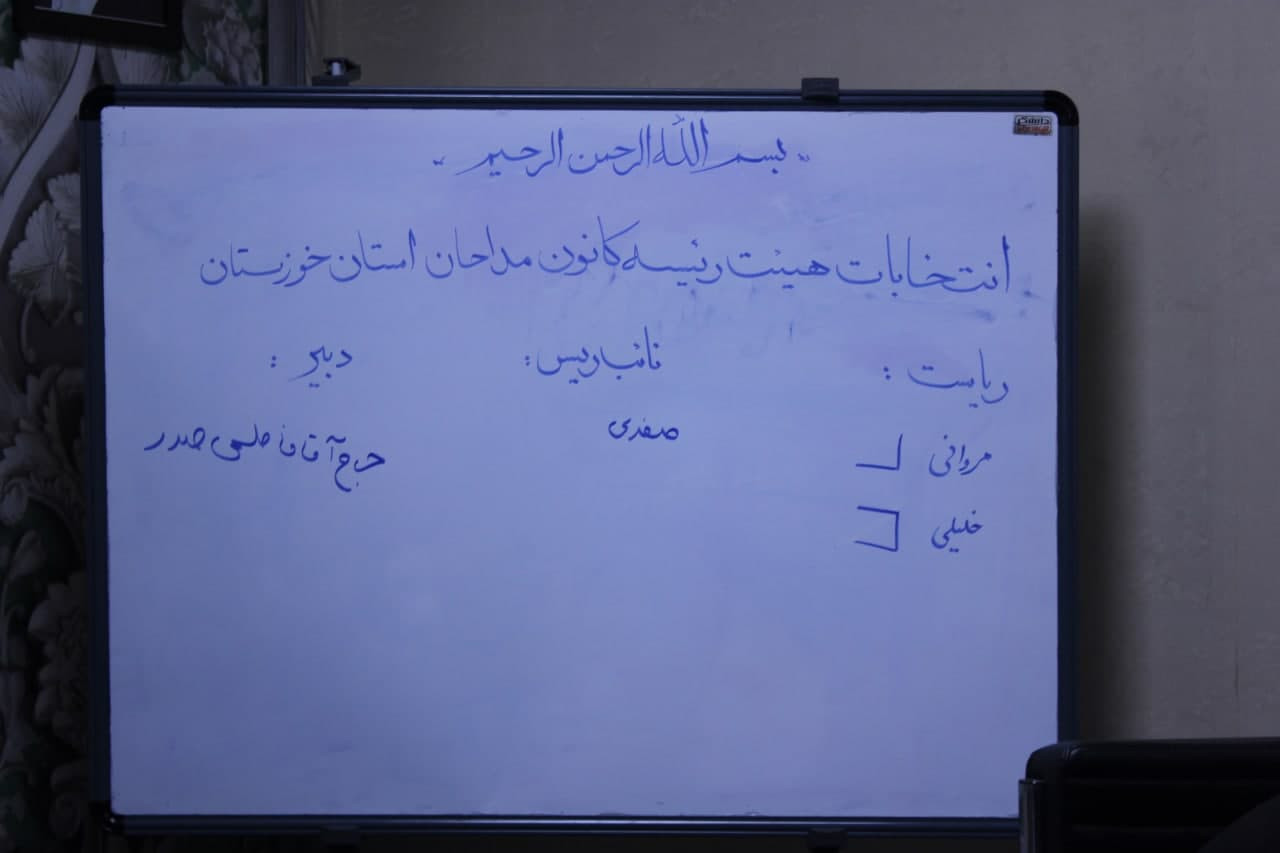 " بسم الله الرحمن الرحیم "
انتخابات هیئت رئیسه کانون مداحان استان خوزستان
ریاست : نائب رییس : دبیر :
مروانی صفدری حاج آقا فاطمی صدر
خلیلی